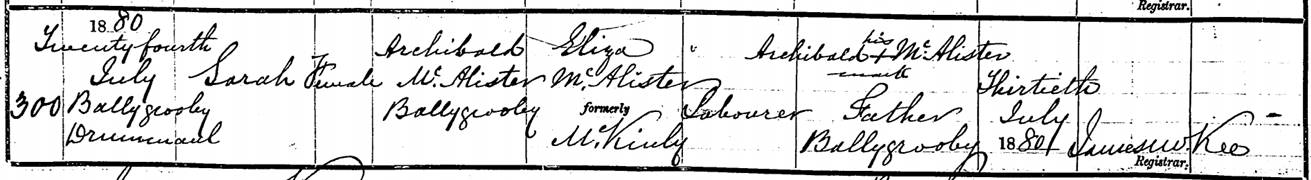 Registrar.
1880
Twenty fourth
July
300 Ballygrooby
Drummaul
Sarah
Female
Archibald
Mc. Alister
Ballygrooby
Eliza
Mc. Alister
formerly
McKinly
"
Labourer
Archibald his + Mc. Alister
mark
Father
Ballygrooby
Thirtieth
July
1880
James W Kee
Registrar.